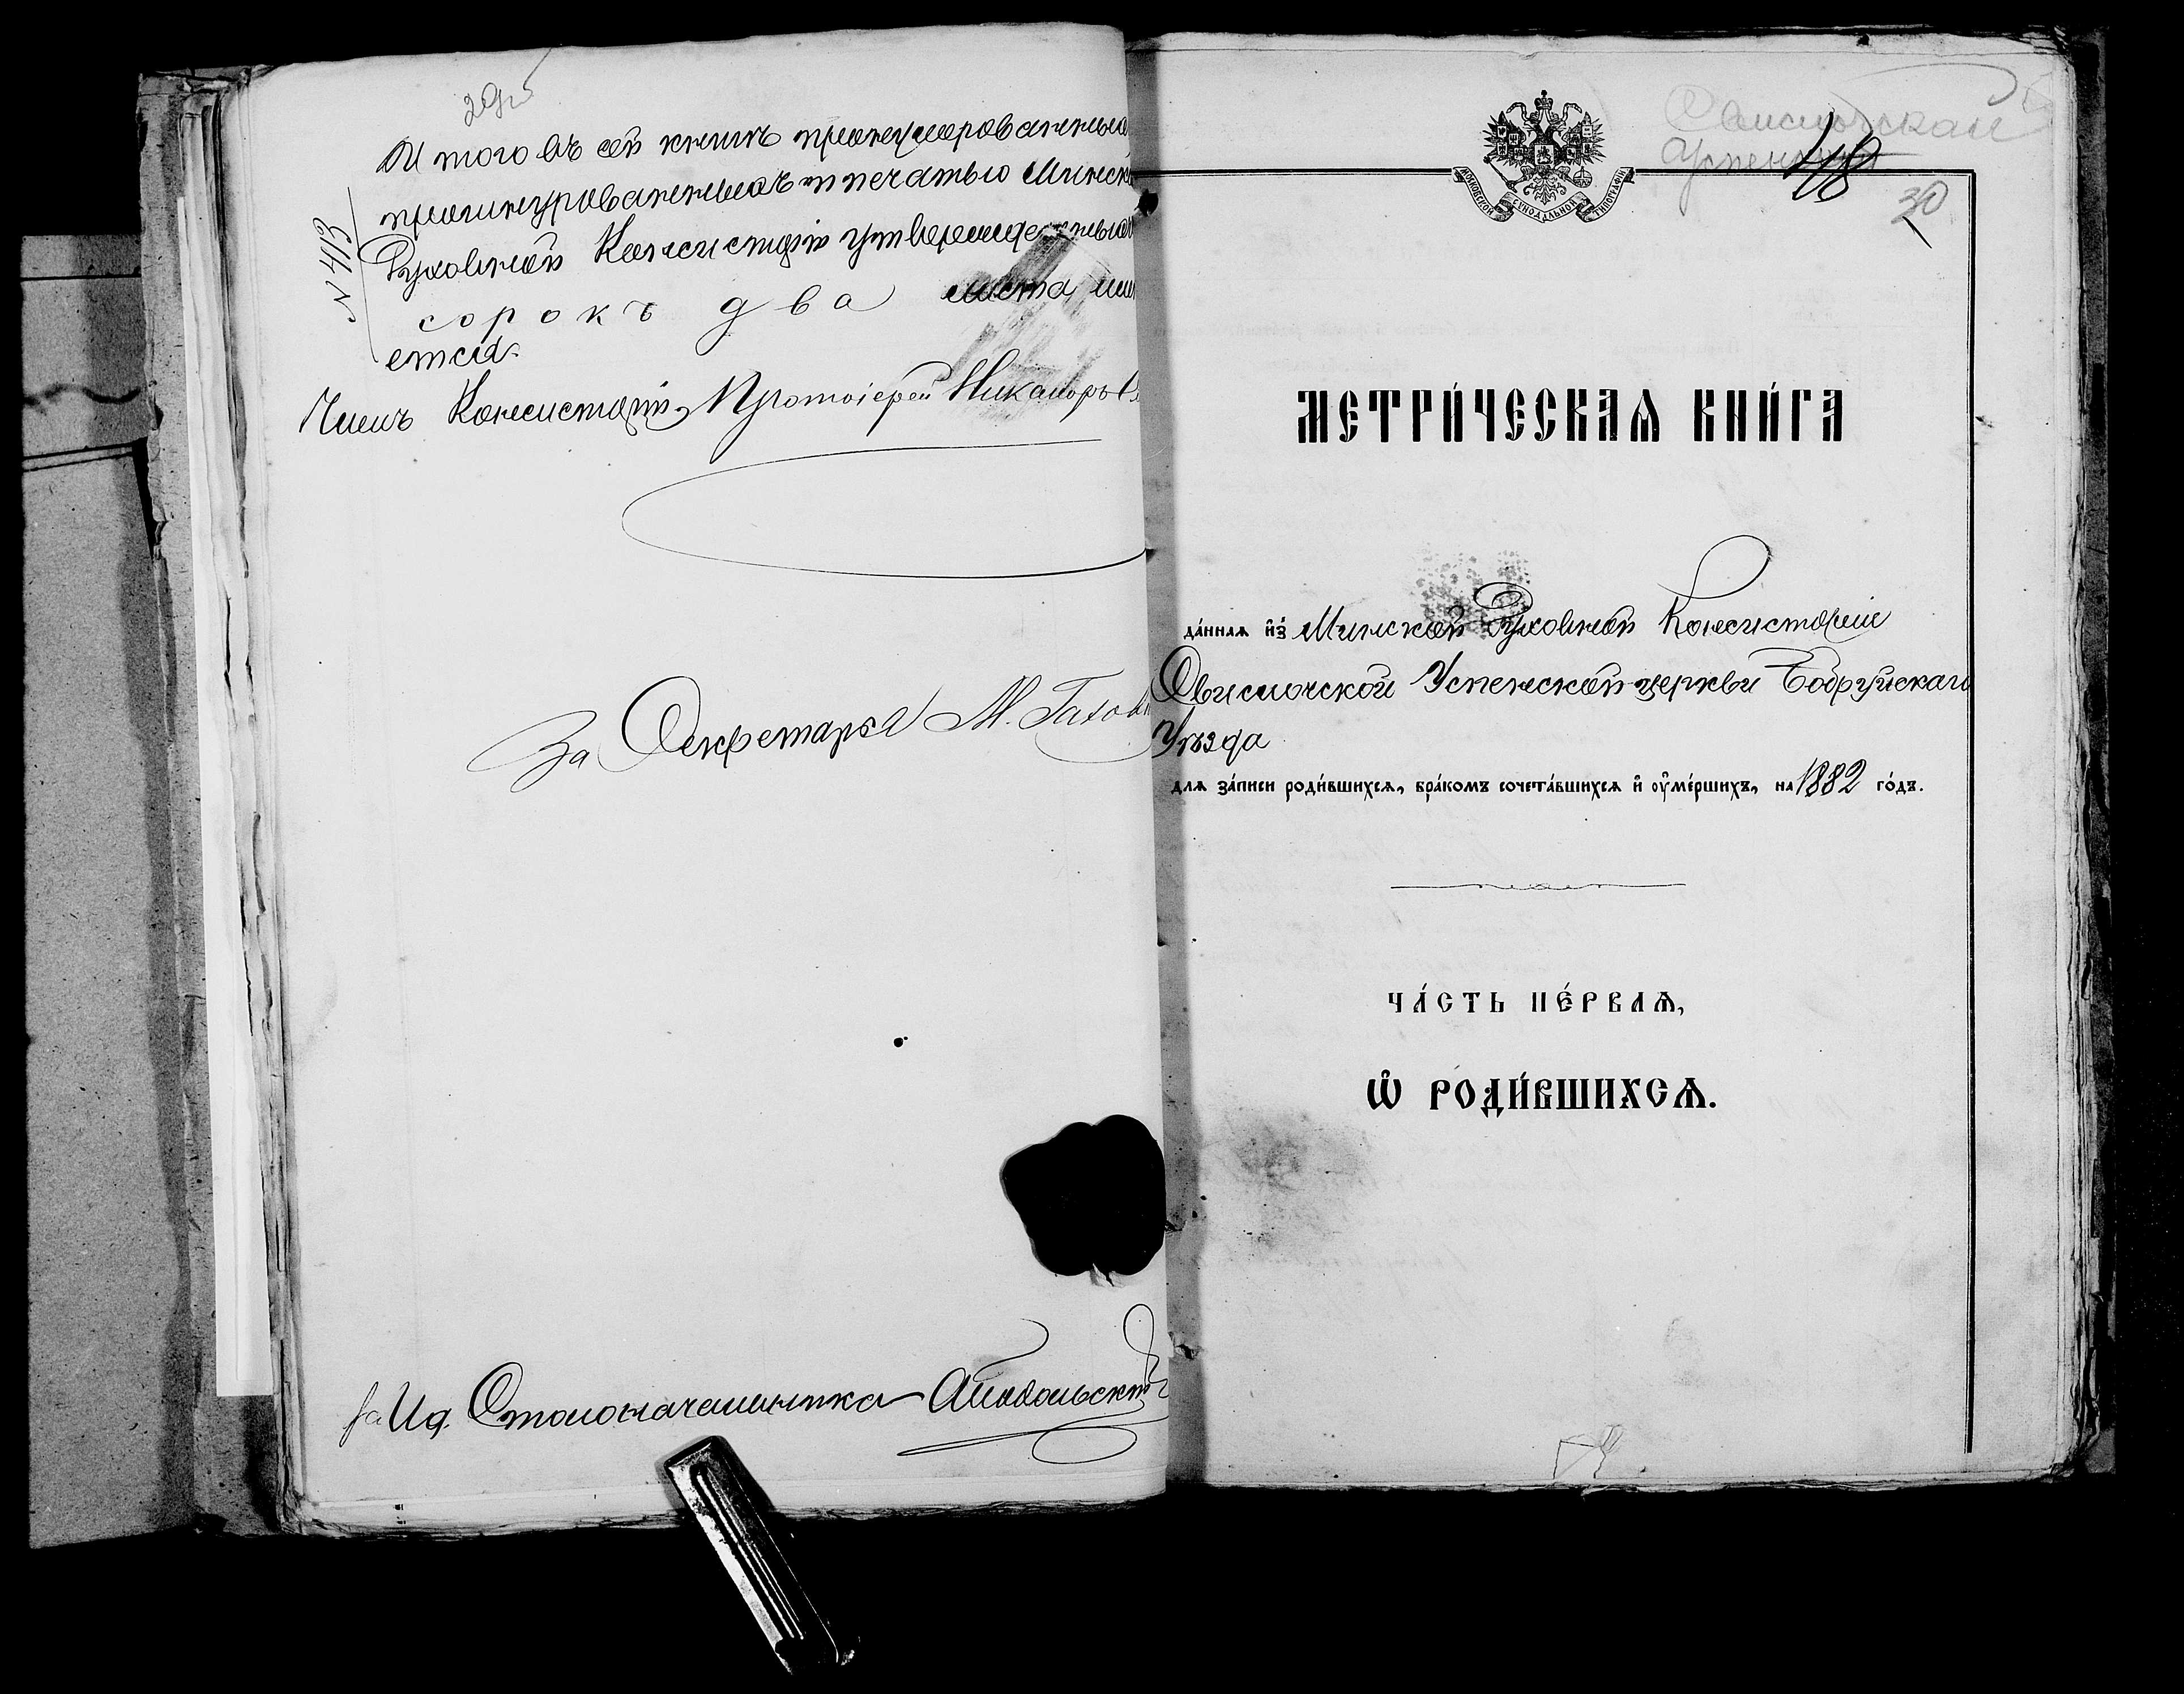 29об
И того въ сей книгѣ пронумерованныхъ
прошнурованныхъ и печатью Минск
Духовной Консисторіи утвержденныхъ
сорокъ два листа име
ется.
№ 413
Членъ Консисторіи, Протоіерей Никаноръ
За Секретаря М.
За И.д. Столоначальника
Свислочская
Успенская
48
30
МОСКОВСКОЙ СѴНОДАЛЬНОЙ ТИПОГРАФІИ
МЕТРИ́ЧЕСКАѦ КНИ́ГА
да́ннаѧ и҆з̾ Минской Духовной Консисторіи
Свислочской Успенской церкви Бобруйскаго
Уѣзда
для за́писи роди́вшихсѧ, бра́комъ сочета́вшихсѧ и҆ ᲂу҆ме́ршихъ, на 1882 го́дъ.
ЧА́СТЬ ПЕ́РВАѦ,
Ѡ҆ РОДИ́ВШИХСѦ.